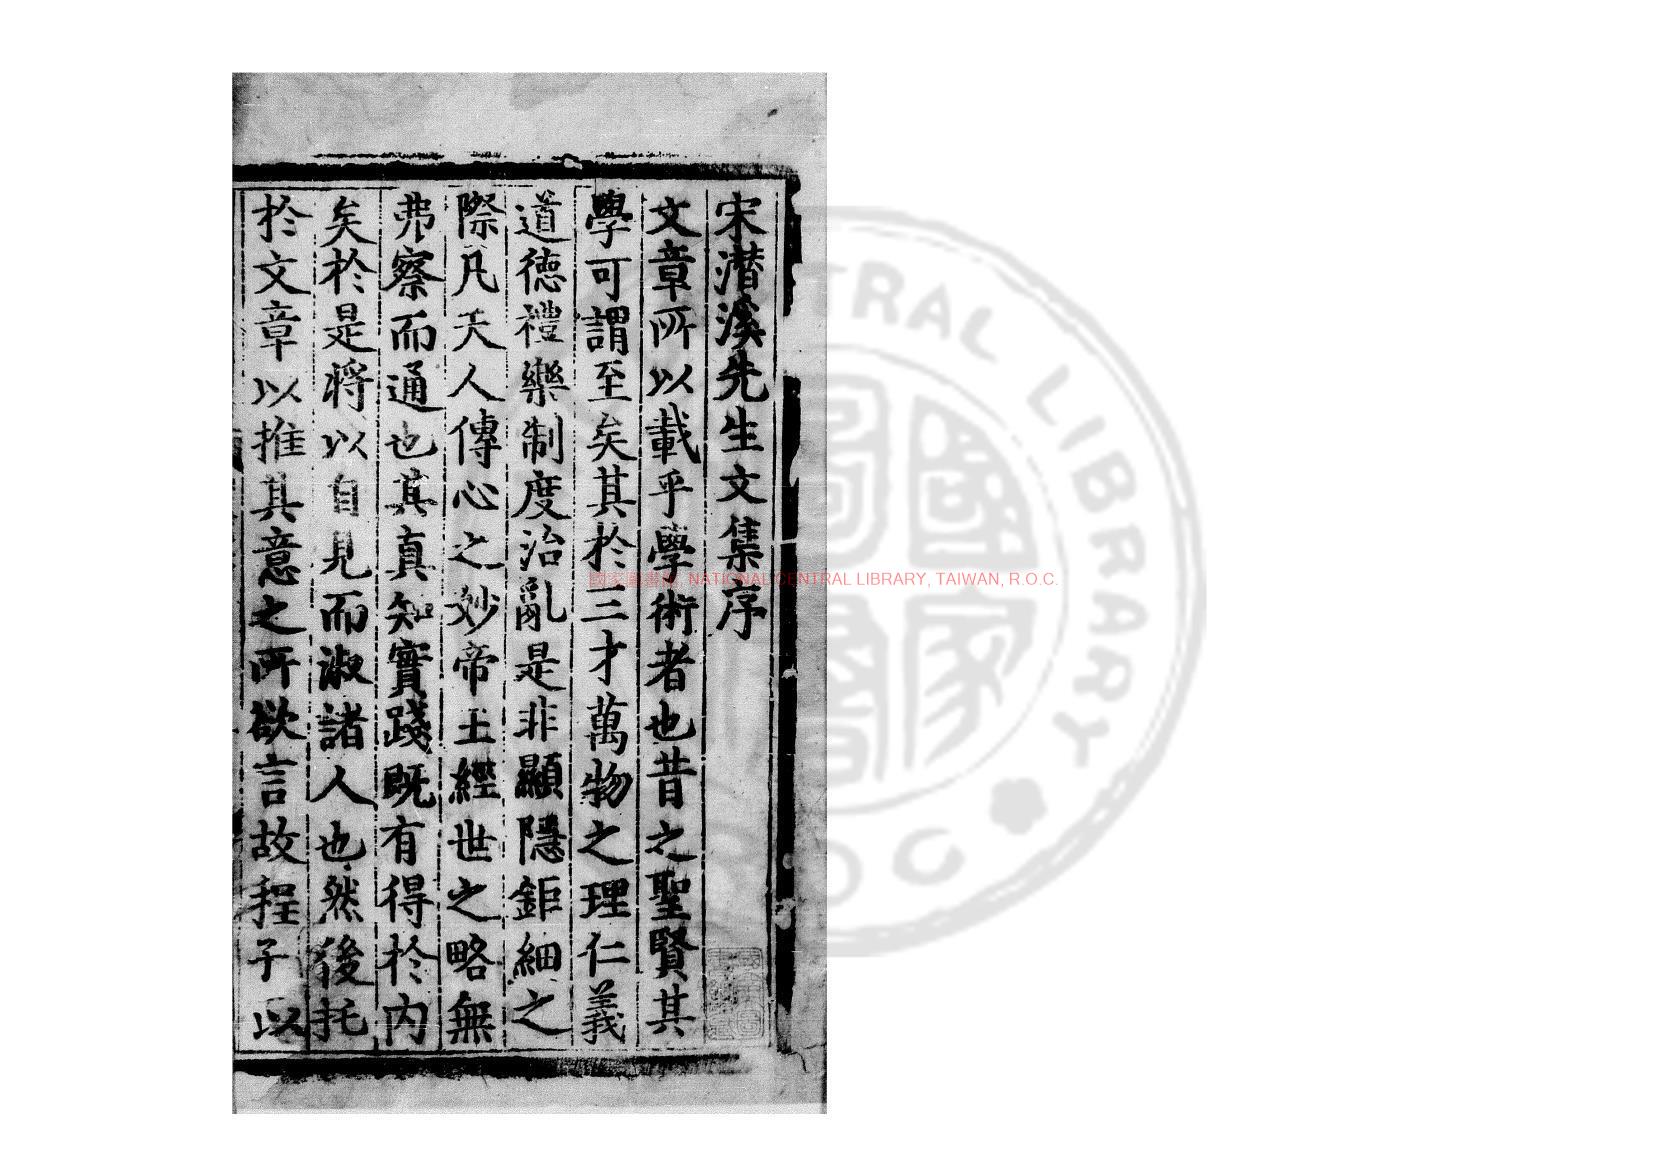 宋潜溪先生文集序
文章所以載乎學術者也昔之聖賢其
學可謂至矣其於三才萬物之理仁義
道德禮樂制度治亂是非顯隱鉅細之
際凡天人傳心之妙帝王經世之略無
弗察而通也其真知實踐既有得於內
矣於是將以自見而淑諸人也然後托
於文章以推其意之所欲言故程子以
國家圖書館, NATIONAL CENTRAL LIBRARY, TAIWAN, R.O.C.